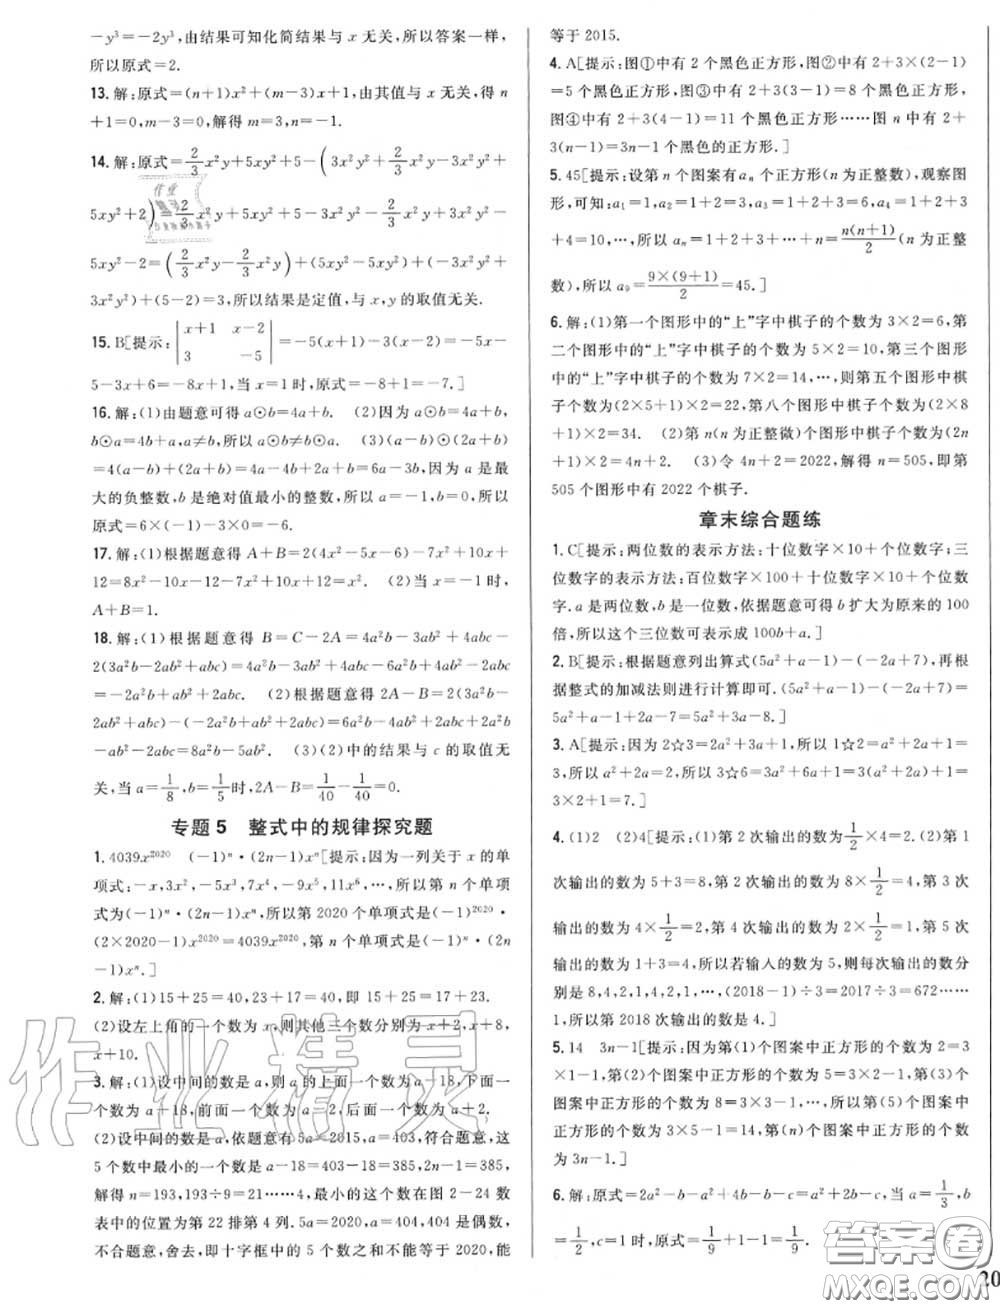 -y³=-2y³,由结果可知化简结果与 x 无关,所以答案一样,
所以原式=2.
13.解:原式=(n+1)x²+(m-3)x+1,由其值与 x 无关,得 n
+1=0,m-3=0,解得 m=3,n=-1.
14.解:原式=2/3x²y+5xy²+5-(3x²y³+2/3x²y-3x²y³+
5xy²+2)=2/3x²y+5xy²+5-3x²y³-2/3x²y+3x²y³-
5xy²-2=(2/3x²y-2/3x²y)+(5xy²-5xy²)+(-3x²y³+
3x²y³)+(5-2)=3,所以结果是定值,与 x,y 的取值无关.
15.B[提示:|x+1 x-2 3 -5|=-5(x+1)-3(x-2)=-5x-
5-3x+6=-8x+1,当 x=1 时,原式=-8+1=-7.]
16.解:(1)由题意可得 a⊙b=4a+b. (2)因为 a⊙b=4a+b,
b⊙a=4b+a,a≠b,所以 a⊙b≠b⊙a. (3)(a-b)⊙(2a+b)
=4(a-b)+(2a+b)=4a-4b+2a+b=6a-3b,因为 a 是最
大的负整数,b 是绝对值最小的整数,所以 a=-1,b=0,所以
原式=6×(-1)-3×0=-6.
17.解:(1)根据题意得 A+B=2(4x²-5x-6)-7x²+10x+
12=8x²-10x-12-7x²+10x+12=x². (2)当 x=-1 时,
A+B=1.
18.解:(1)根据题意得 B=C-2A=4a²b-5ab²+4abc-
2(3a²b-2ab²+abc)=4a²b-5ab²+4abc-6a²b+4ab²-2abc
=-2a²b-ab²+2abc. (2)根据题意得 2A-B=2(3a²b-
2ab²+abc)-(-2a²b-ab²+2abc)=6a²b-4ab²+2abc+2a²b
-ab²-2abc=8a²b-5ab². (3)(2)中的结果与 c 的取值无
关,当 a=1/8,b=1/5时,2A-B=1/40-1/40=0.
专题 5 整式中的规律探究题
1.4039x²⁰²⁰ (-1)ⁿ·(2n-1)xⁿ[提示:因为一列关于 x 的单
项式:-x,3x²,-5x³,7x⁴,-9x⁵,11x⁶,…,所以第 n 个单项
式为(-1)ⁿ·(2n-1)xⁿ,所以第 2020 个单项式是(-1)²⁰²⁰·
(2×2020-1)x²⁰²⁰=4039x²⁰²⁰,第 n 个单项式是(-1)ⁿ·(2n
-1)xⁿ.]
2.解:(1)15+25=40,23+17=40,即 15+25=23+17.
(2)设左上角的一个数为 x,则其他三个数分别为 x+2,x+8,
x+10.
3.解:(1)设中间的数是 a,则 a 的上面一个数为 a-18,下面一
个数为 a+18,前面一个数为 a-2,后面一个数为 a+2.
(2)设中间的数是 a,依题意有 5a=2015,a=403,符合题意,这
5 个数中最小的一个数是 a-18=403-18=385,2n-1=385,
解得 n=193,193÷9=21……4,最小的这个数在图 2-24 数
表中的位置为第 22 排第 4 列. 5a=2020,a=404,是偶数,
不合题意,舍去,即十字框中的 5 个数之和不能等于 2020,能
等于 2015.
4.A[提示:图①中有 2 个黑色正方形,图②中有 2+3×(2-1)
=5 个黑色正方形,图③中有 2+3(3-1)=8 个黑色正方形,
图④中有 2+3(4-1)=11 个黑色正方形……图 n 中有 2+
3(n-1)=3n-1 个黑色的正方形.]
5.45[提示:设第 n 个图案有 aₙ 个正方形(n 为正整数),观察图
形,可知:a₁=1,a₂=1+2=3,a₃=1+2+3=6,a₄=1+2+3
+4=10,…,所以 aₙ=1+2+3+…+n=n(n+1)/2(n 为正整
数),所以 a₉=9×(9+1)/2=45.]
6.解:(1)第一个图形中的“上”字中棋子的个数为 3×2=6,第
二个图形中的“上”字中棋子的个数为 5×2=10,第三个图形
中的“上”字中棋子的个数为 7×2=14,…,则第五个图形中棋
子个数为(2×5+1)×2=22,第八个图形中棋子个数为(2×8
+1)×2=34. (2)第 n(n 为正整微)个图形中棋子个数为(2n
+1)×2=4n+2. (3)令 4n+2=2022,解得 n=505,即第
505 个图形中有 2022 个棋子.
章末综合题练
1.C[提示:两位数的表示方法:十位数字×10+个位数字;三
位数字的表示方法:百位数字×100+十位数字×10+个位数
字. a 是两位数,b 是一位数,依据题意可得 b 扩大为原来的 100
倍,所以这个三位数可表示成 100b+a.]
2.B[提示:根据题意列出算式(5a²+a-1)-(-2a+7),再根
据整式的加减法则进行计算即可.(5a²+a-1)-(-2a+7)=
5a²+a-1+2a-7=5a²+3a-8.]
3.A[提示:因为 2☆3=2a²+3a+1,所以 1☆2=a²+2a+1=
3,所以 a²+2a=2,所以 3☆6=3a²+6a+1=3(a²+2a)+1=
3×2+1=7.]
4.(1)2 (2)4[提示:(1)第 2 次输出的数为1/2×4=2.(2)第 1
次输出的数为 5+3=8,第 2 次输出的数为 8×1/2=4,第 3 次
输出的数为 4×1/2=2,第 4 次输出的数为 2×1/2=1,第 5 次
输出的数为 1+3=4,所以若输人的数为5,则每次输出的数分
别是 8,4,2,1,4,2,1,…,(2018-1)÷3=2017÷3=672……
1,所以第 2018 次输出的数是 4.]
5.14 3n-1[提示:因为第(1)个图案中正方形的个数为 2=3
×1-1,第(2)个图案中正方形的个数为 5=3×2-1,第(3)个
图案中正方形的个数为 8=3×3-1,所以第(5)个图案中正
方形的个数为 3×5-1=14,第(n)个图案中正方形的个数
为 3n-1.]
6.解:原式=2a²-b-a²+4b-b-c=a²+2b-c,当 a=1/3,b
=1/2,c=1 时,原式=1/9+1-1=1/9.
20
作业精灵
答案圈
MXQE.COM